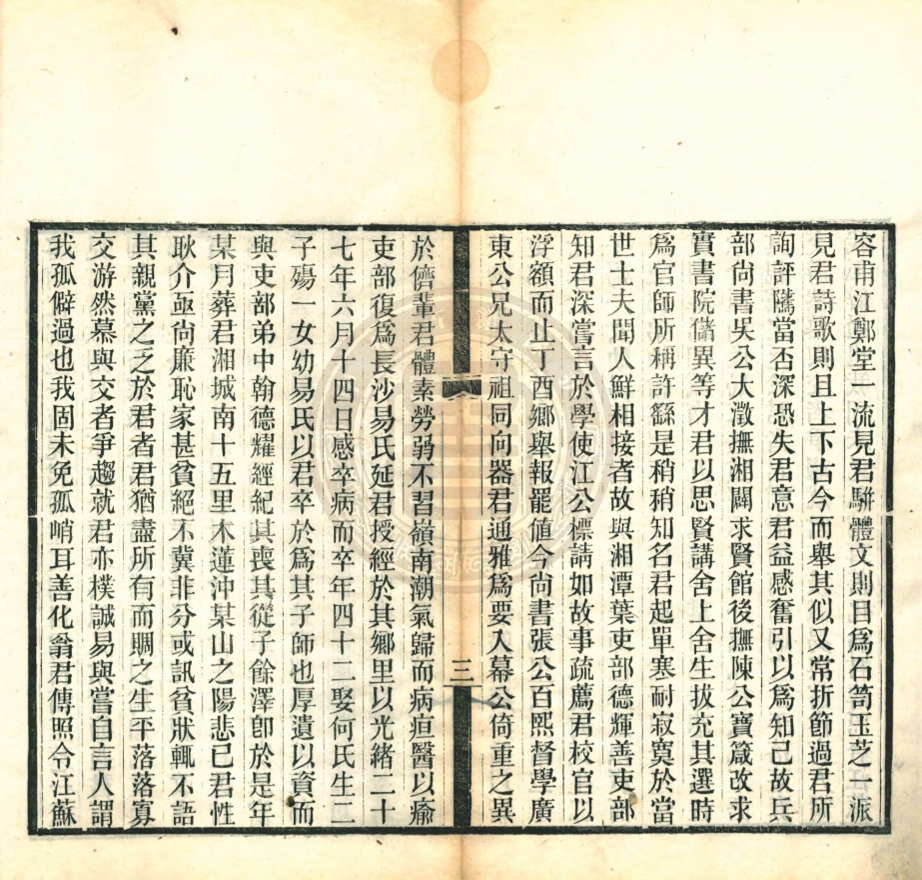 容甫江鄭堂一流見君駢體文則目爲石笥玉芝一派
見君詩歌則且上下古今而舉其似又常折節過君所
詢評隲當否深恐失君意君益感奮引以爲知己故兵
部尚書吳公大澂撫湘闢求賢館後撫陳公寶箴改求
實書院儲異等才君以思賢講舍上舍生拔充其選時
爲官師所稱許繇是稍稍知名君起單寒耐寂寞於當
世士夫聞人鮮相接者故與湘潭葉吏部德輝善吏部
知君深嘗言於學使江公標請如故事疏薦君校官以
浮額而止丁酉鄉舉報罷値今尚書張公百熙督學廣
東公兄太守祖同向器君通雅爲要入幕公倚重之異
三
於儕輩君體素勞弱不習嶺南潮氣歸而病疸醫以瘉
吏部復爲長沙易氏延君授經於其鄉里以光緒二十
七年六月十四日感卒病而卒年四十二娶何氏生二
子殤一女幼易氏以君卒於爲其子師也厚遺以資而
與吏部弟中翰德耀經紀其喪其從子餘澤卽於是年
某月葬君湘城南十五里木蓮沖某山之陽悲已君性
耿介亟尙廉恥家甚貧絕不冀非分或訊貧狀輒不語
其親黨之乏於君者君猶盡所有而賙之生平落落寡
交游然慕與交者爭趨就君亦樸誠易與嘗自言人謂
我孤僻過也我固未免孤峭耳善化翁君傳照令江蘇